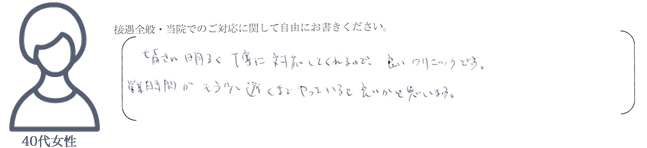 接遇全般・当院でのご対応に関して自由にお書きください。
皆さん明るく丁寧に対応してくれるので、良いクリニックです。
営業時間がもう少し遅くまでやっていると良いかと思います。
40代女性